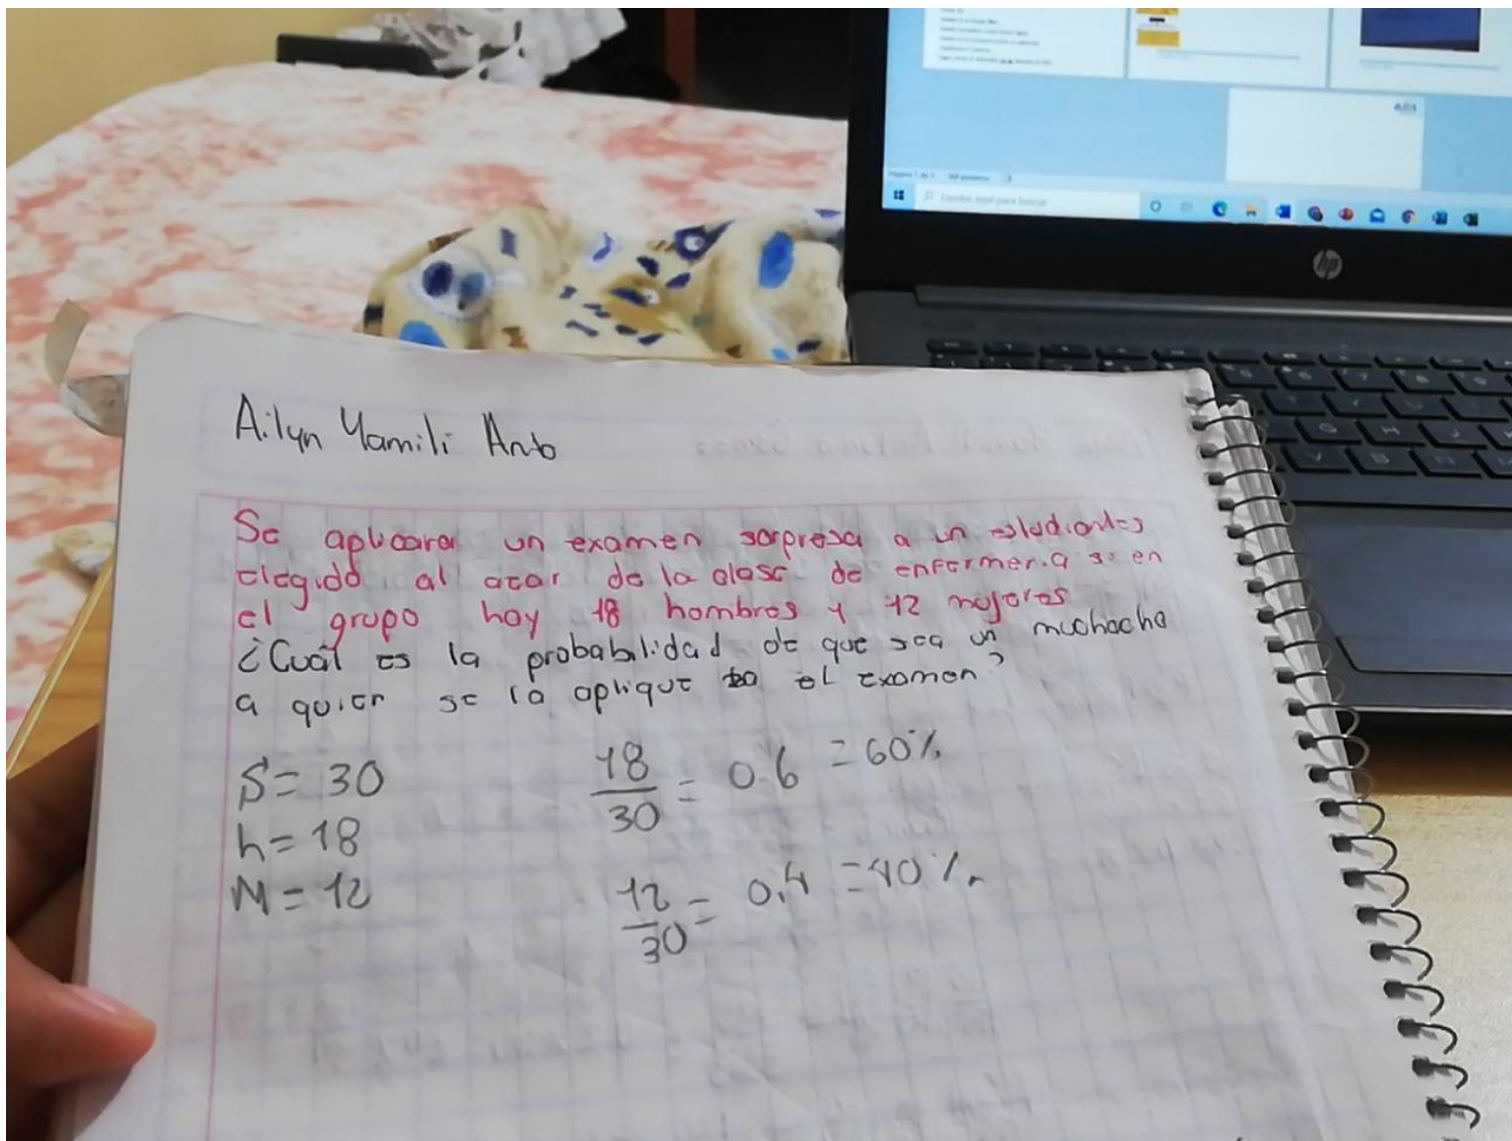 Escribe aquí para buscar
hp
Ailyn Yamili Anto
Se aplicara un examen sorpresa a un estudiantes
elegido al azar de la clase de enfermeria si en
el grupo hay 18 hombres y 12 mujeres
¿Cuál es la probabilidad de que sea un muchacho
a quien se lo aplique el examen?
S= 30
18/30 = 0.6 = 60%
h= 18
M= 12
12/30 = 0.4 = 40%